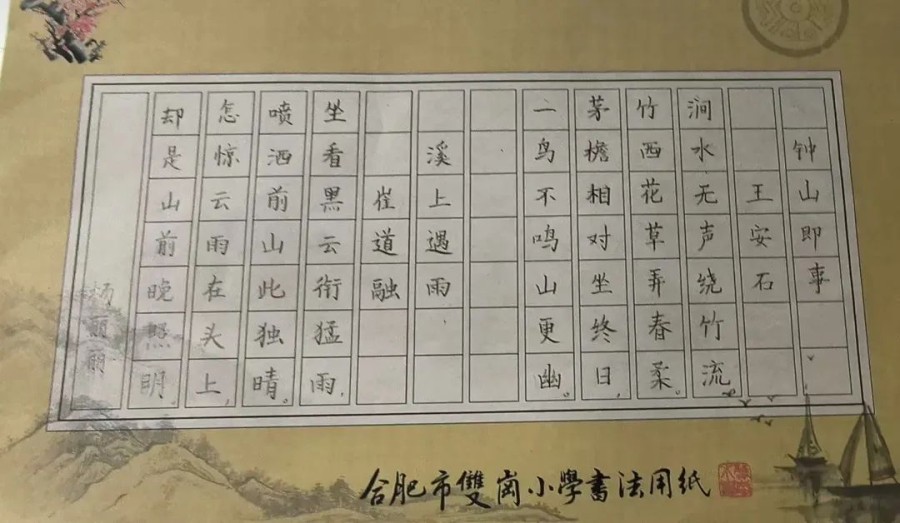 钟山即事
王安石
涧水无声绕竹流
竹西花草弄春柔。
茅檐相对坐终日,
一鸟不鸣山更幽。
溪上遇雨
崔道融
坐看黑云衔猛雨,
喷洒前山此独晴。
怎惊云雨在头上,
却是山前晚照明。
杨丽丽
合肥市雙崗小學書法用紙